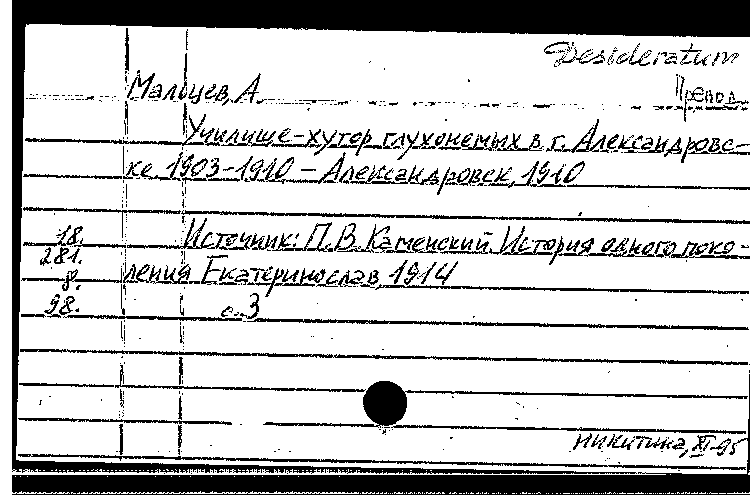 Desideratum
Мальцев, А.
Препод.
Училище-хутор глухонемых в г. Александровс-
ке 1903-1910 – Александровск, 1910
18. Источник: П.В. Каменский. История одного поко-
281. ления Екатеринослав, 1914
8.
98. с. 3
Никитина, XI-95